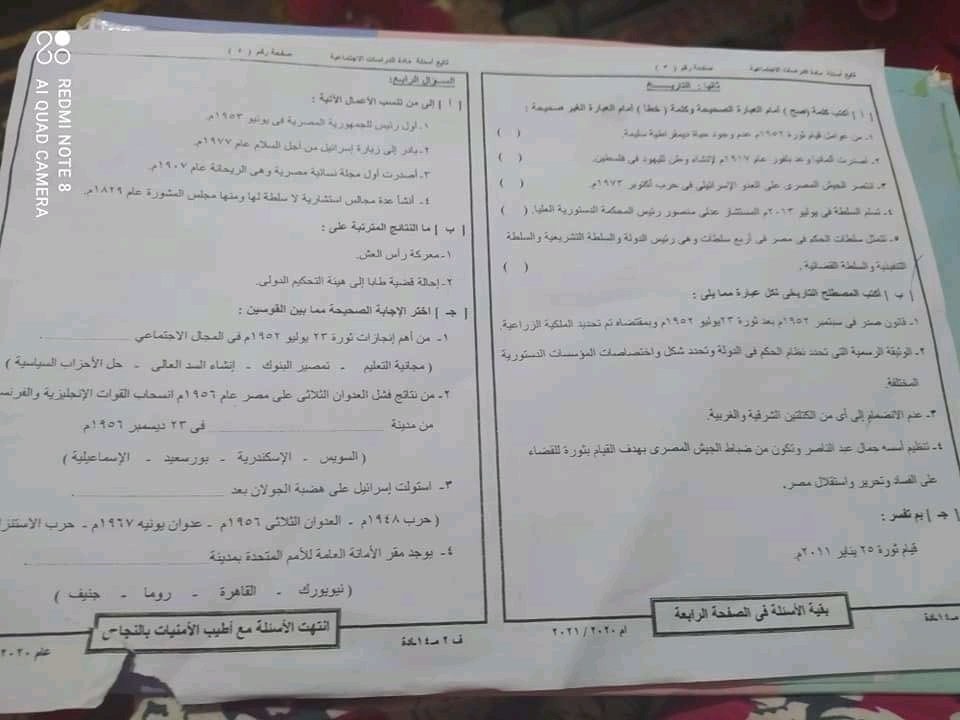 تابع أسئلة مادة الدراسات الاجتماعية صفحة رقم ( ٣ )
ثانيا : التاريخ
[ أ ] أكتب كلمة (صح ) أمام العبارة الصحيحة وكلمة ( خطأ ) أمام العبارة الغير صحيحة :
١- من عوامل قيام ثورة ١٩٥٢م عدم وجود حياة ديمقراطية سليمة. ( )
٢- أصدرت ألمانيا وعد بلفور عام ١٩١٧م لإنشاء وطن لليهود فى فلسطين. ( )
٣- انتصر الجيش المصرى على العدو الإسرائيلى فى حرب أكتوبر ١٩٧٣م. ( )
٤- تسلم السلطة فى يوليو ٢٠١٣م المستشار عدلى منصور رئيس المحكمة الدستورية العليا. ( )
٥- تتمثل سلطات الحكم فى مصر فى أربع سلطات وهى رئيس الدولة والسلطة التشريعية والسلطة
التنفيذية والسلطة القضائية . ( )
[ ب ] أكتب المصطلح التاريخى لكل عبارة مما يلى :
١- قانون صدر فى سبتمبر ١٩٥٢م بعد ثورة ٢٣ يوليو ١٩٥٢م وبمقتضاه تم تحديد الملكية الزراعية.
٢- الوثيقة الرسمية التى تحدد نظام الحكم فى الدولة وتحدد شكل واختصاصات المؤسسات الدستورية
المختلفة.
٣- عدم الانضمام إلى أى من الكتلتين الشرقية والغربية.
٤- تنظيم أسسه جمال عبد الناصر وتكون من ضباط الجيش المصرى بهدف القيام بثورة للقضاء
على الفساد وتحرير واستقلال مصر.
[ جـ ] بم تفسر :
قيام ثورة ٢٥ يناير ٢٠١١م.
بقية الأسئلة فى الصفحة الرابعة
صـ١٤مادة
ام ٢٠٢٠ / ٢٠٢١
تابع أسئلة مادة الدراسات الاجتماعية صفحة رقم ( ٥ )
السؤال الرابع:
[ أ ] إلى من تنسب الأعمال الآتية :
١- أول رئيس للجمهورية المصرية فى يونيو ١٩٥٣م.
٢- بادر إلى زيارة إسرائيل من أجل السلام عام ١٩٧٧م.
٣- أصدرت أول مجلة نسائية مصرية وهى الريحانة عام ١٩٠٧م.
٤- أنشأ عدة مجالس استشارية لا سلطة لها ومنها مجلس المشورة عام ١٨٢٩م.
[ ب ] ما النتائج المترتبة على :
١- معركة رأس العش.
٢- إحالة قضية طابا إلى هيئة التحكيم الدولى.
[ جـ ] اختر الإجابة الصحيحة مما بين القوسين :
١- من أهم إنجازات ثورة ٢٣ يوليو ١٩٥٢م فى المجال الاجتماعي ..................
( مجانية التعليم - تمصير البنوك - إنشاء السد العالى - حل الأحزاب السياسية )
٢- من نتائج فشل العدوان الثلاثى على مصر عام ١٩٥٦م انسحاب القوات الإنجليزية والفرنس
من مدينة .................. فى ٢٣ ديسمبر ١٩٥٦م
( السويس - الإسكندرية - بورسعيد - الإسماعيلية )
٣- استولت إسرائيل على هضبة الجولان بعد ..................
( حرب ١٩٤٨م - العدوان الثلاثى ١٩٥٦م - عدوان يونيه ١٩٦٧م - حرب الاستنزا
٤- يوجد مقر الأمانة العامة للأمم المتحدة بمدينة ..................
( نيويورك - القاهرة - روما - جنيف )
انتهت الأسئلة مع أطيب الأمنيات بالنجاح
ف ٢ صـ١٤مادة
عام ٢٠٢٠
REDMI NOTE 8
AI QUAD CAMERA